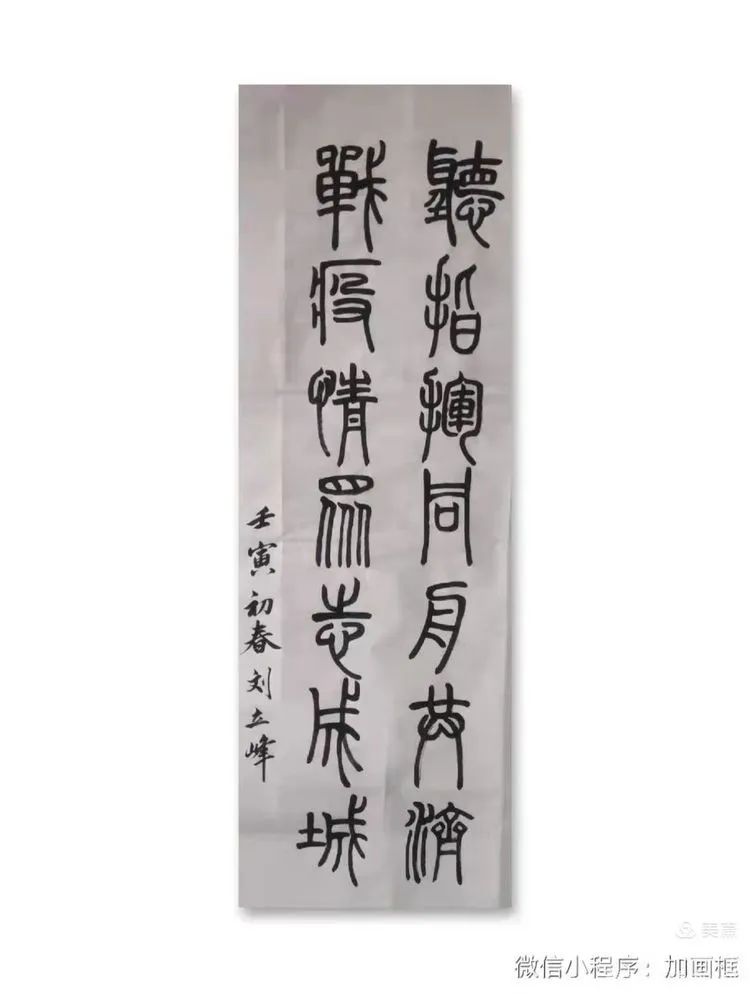 聽指揮同舟共濟
戰疫情眾志成城
壬寅初春刘立峰
美篇
微信小程序：加画框